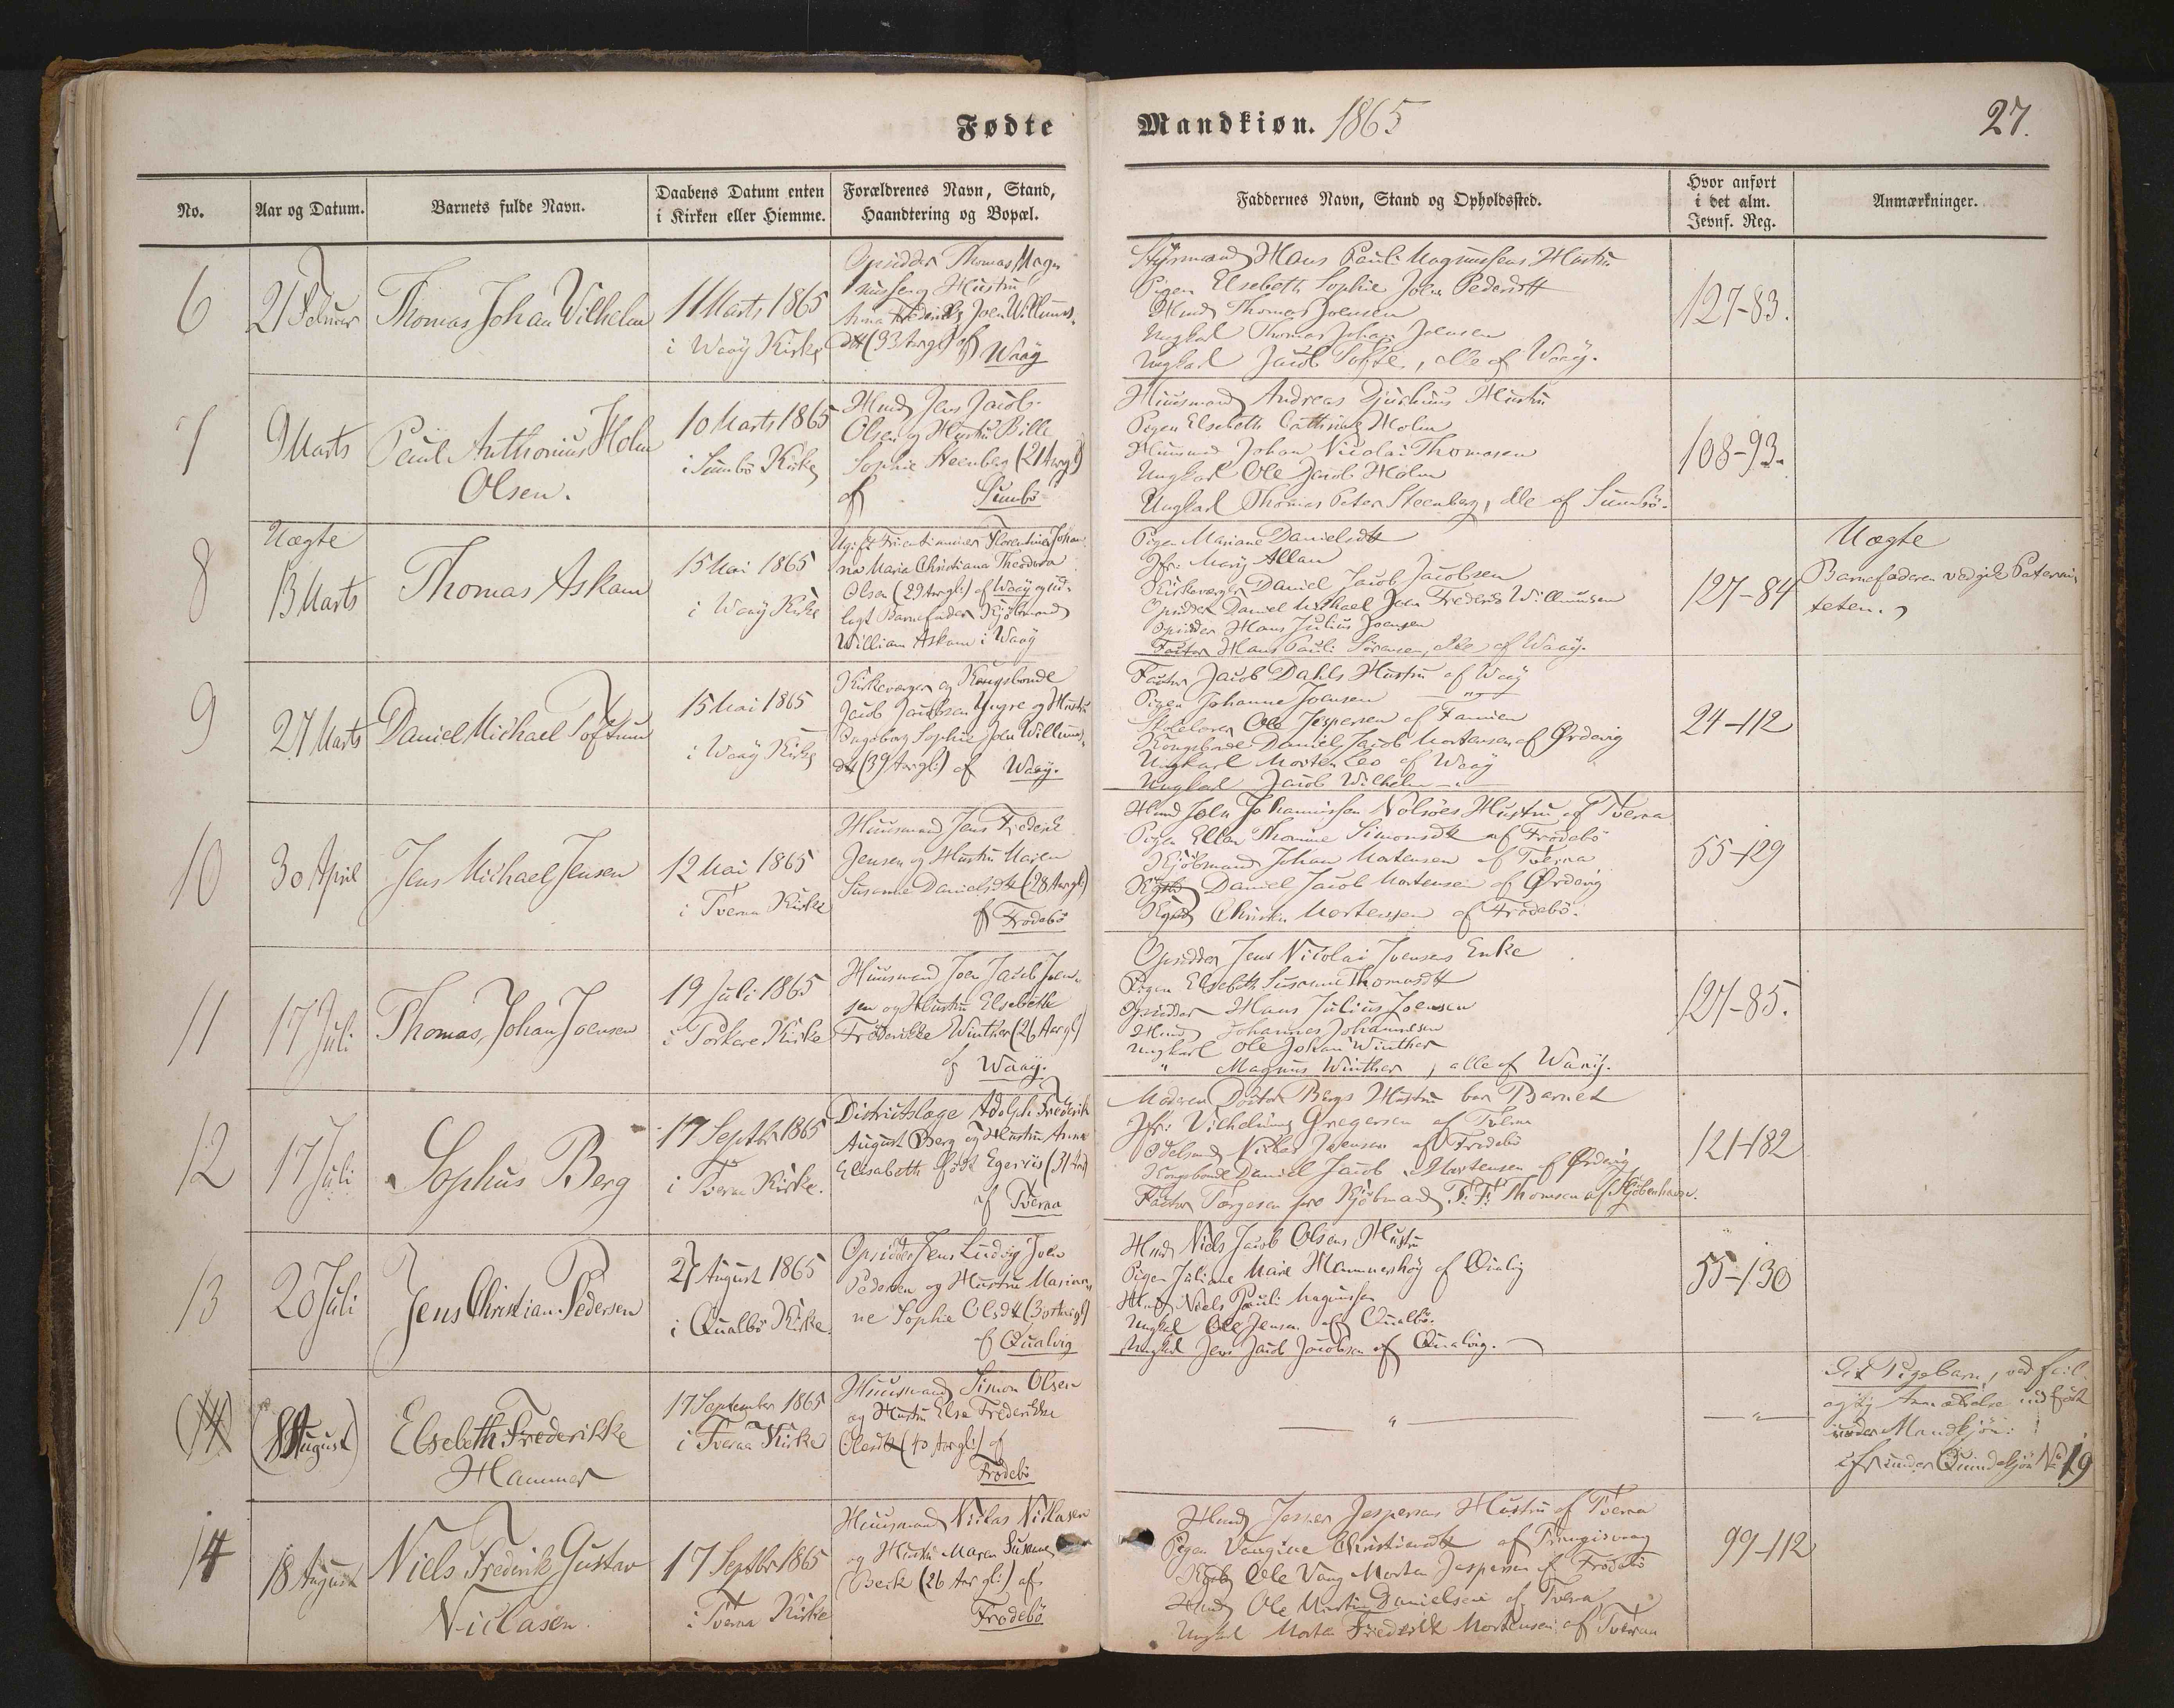 Fødte
Mandkiøn. 1865
27.
No.
Aar og Datum.
Barnets fulde Navn.
Daabens Datum enten
i Kirken eller Hiemme.
Forældrenes Navn, Stand,
Haandtering og Bopæl.
Faddernes Navn, Stand og Opholdssted.
Hvor anført
i det alm.
Jevnf. Reg.
Anmærkninger.
6
21 Februar
Thomas Johan Wilhelm
11 Marts 1865
i Waag Kirke
Opsidder Thomas Mag-
nussen og Hustru
Anna Joen Willums-
dtt (33 Aar gl) af
Waag
Styrmand Hans Pauli Magnussens Hustru
Pigen Elsebeth Sophie Joen Pedersdtt
Hmd Thomas Joensen
Ungkarl Thomas Johan Joensen
Ungkarl Jacob, alle af Waag.
127-83.
7
9 Marts
Paul Anthonius Holm
Olsen.
10 Marts 1865
i Sumbø Kirke
Hmd Jens Jacob
Olsen og Hustru Bille
Sophie Steenberg (21 Aar gl)
af Sumbø
Huusmand Andreas Hustru
Pigen Elsebeth Cathrine Holm
Huusmand Johan Nicolai Thomasen
Ungkarl Ole Jacob Holm
Ungkarl Thomas Peter Steenberg, alle af Sumbø.
108-93.
8
Uægte
13 Marts
Thomas Askam
15 Mai 1865
i Waag Kirke
Ugift Fruentimmer Florentine Johan-
na Maria Christiana Theodora
Olsen (29 Aar gl:) af Waag og ud-
lagt Barnefader Kjøbmand
William Askam i Waag
Pigen Mariane Danielsdtt
Jfr: Mary Allan
Kirkeværger Daniel Jacob Jacobsen
Opsidder Daniel Michael Joen Frederik Willumsen
Opsidder Hans Julius Joensen
Factor Hans Pauli Sørensen, alle af Waag.
127-84
Uægte
Barnefaderen vedgik Paterni-
teten.
9
27 Marts
Daniel Michael Toftum
15 Mai 1865
i Waag Kirke
Kirkeværger og Kongsbonde
Jacob Jacobsen Yngre og Hustru
Ingeborg Sophie Joen Willums-
dtt (39 Aar gl:) af Waag.
Factor Jacob Dahls Hustru af Waag
Pigen Johanne Joensen —"—
Skolelærer Ole Jespersen af Famien
Kongsbonde Daniel Jacob Mortensen af Ørdevig
Ungkarl Morten Leo af Waag
Ungkarl Jacob Wilhelm —"—
24-112
10
30 April
Jens Michael Jensen
12 Mai 1865
i Tveraa Kirke
Huusmand Jens Frederik
Jensen og Hustru Maren
Susanne Danielsdtt (28 Aar gl:)
af Frodebø
Hmd Joen Johannissen Nolsøes Hustru af Tveraa
Pigen Ellen Thomine Simonsdtt af Frodebø
Kjøbmand Johan Mortensen af Tveraa
Daniel Jacob Mortensen af Ørdevig
Christen Mortensen af Frodebø.
55-129
11
17 Juli
Thomas Johan Joensen
19 Juli 1865
i Porkere Kirke
Huusmand Joen Jacob Joen-
sen og Hustru Elsebeth
Frederikke Winther (26 Aar gl)
af Waag.
Opsidder Jens Nicolai Joensens Enke
Pigen Elsebeth Susanne Thomasdtt
Opsidder Hans Julius Joensen
Hmd Johannes Johannesen
Ungkarl Ole Johan Winther
" Magnus Winther, alle af Waag.
127-85.
12
17 Juli
Sophus Berg
17 Septbr 1865
i Tveraa Kirke.
Districtslæge Adolph Frederik
August Berg og Hustru Anna
Elisabeth født Egeriis (31 Aar)
af Tveraa
Moderen Doctor Bergs Hustru bar Barnet
Jfr: Vilhelmine Gregersen af Tveraa
Odelsmd Niclas Joensen af Frodebø
Kongsbonde Daniel Jacob Mortensen af Ørdevig
Factor Torgesen pro Kjøbmand F. F. Thomsen af Kjøbenhavn.
121-182
13
20 Juli
Jens Christian Pedersen
27 August 1865
i Qualbø Kirke.
Opsidder Jens Ludvig Joen
Pedersen og Hustru Marian-
ne Sophie Olsdtt (30 Aar gl)
af Qualvig
Hmd Niels Jacob Olsens Hustru
Pigen Juliane Marie Hammershøy af Qualvig
Hmd Niels Pauli Magnussen
Ungkarl Ole Jensen af Qualbø.
Ungkarl Jens Jacob Jacobsen af Qualvig.
55-130
(14)
(8 August)
Elsebeth Frederikke
Hammer
17 September 1865
i Tveraa Kirke
Huusmand Simon Olsen
og Hustru Else Frederikke
Olesdtt (40 Aar gl:) af
Frodebø
— " —
— " —
Det Pigebarn, ved feil-
agtig Anmeldelse indført
under Mandkjøn:
cfr under Quindekjøn No 19
14
18 August
Niels Frederik Gustav
Niclasen
17 Septbr 1865
i Tveraa Kirke
Huusmand Niclas Niclasen
og Hustru Maren Susanne
Beck (26 Aar gl:) af
Frodebø
Hmd Jesper Jespersens Hustru af Tveraa
Pigen Christiansdtt af Trangisvaag
Ole Vang Morten Jespersen af Frodebø
Hmd Ole Martin Danielsen af Tveraa
Ungkarl Morten Frederik Mortensen af Tveraa
99-112